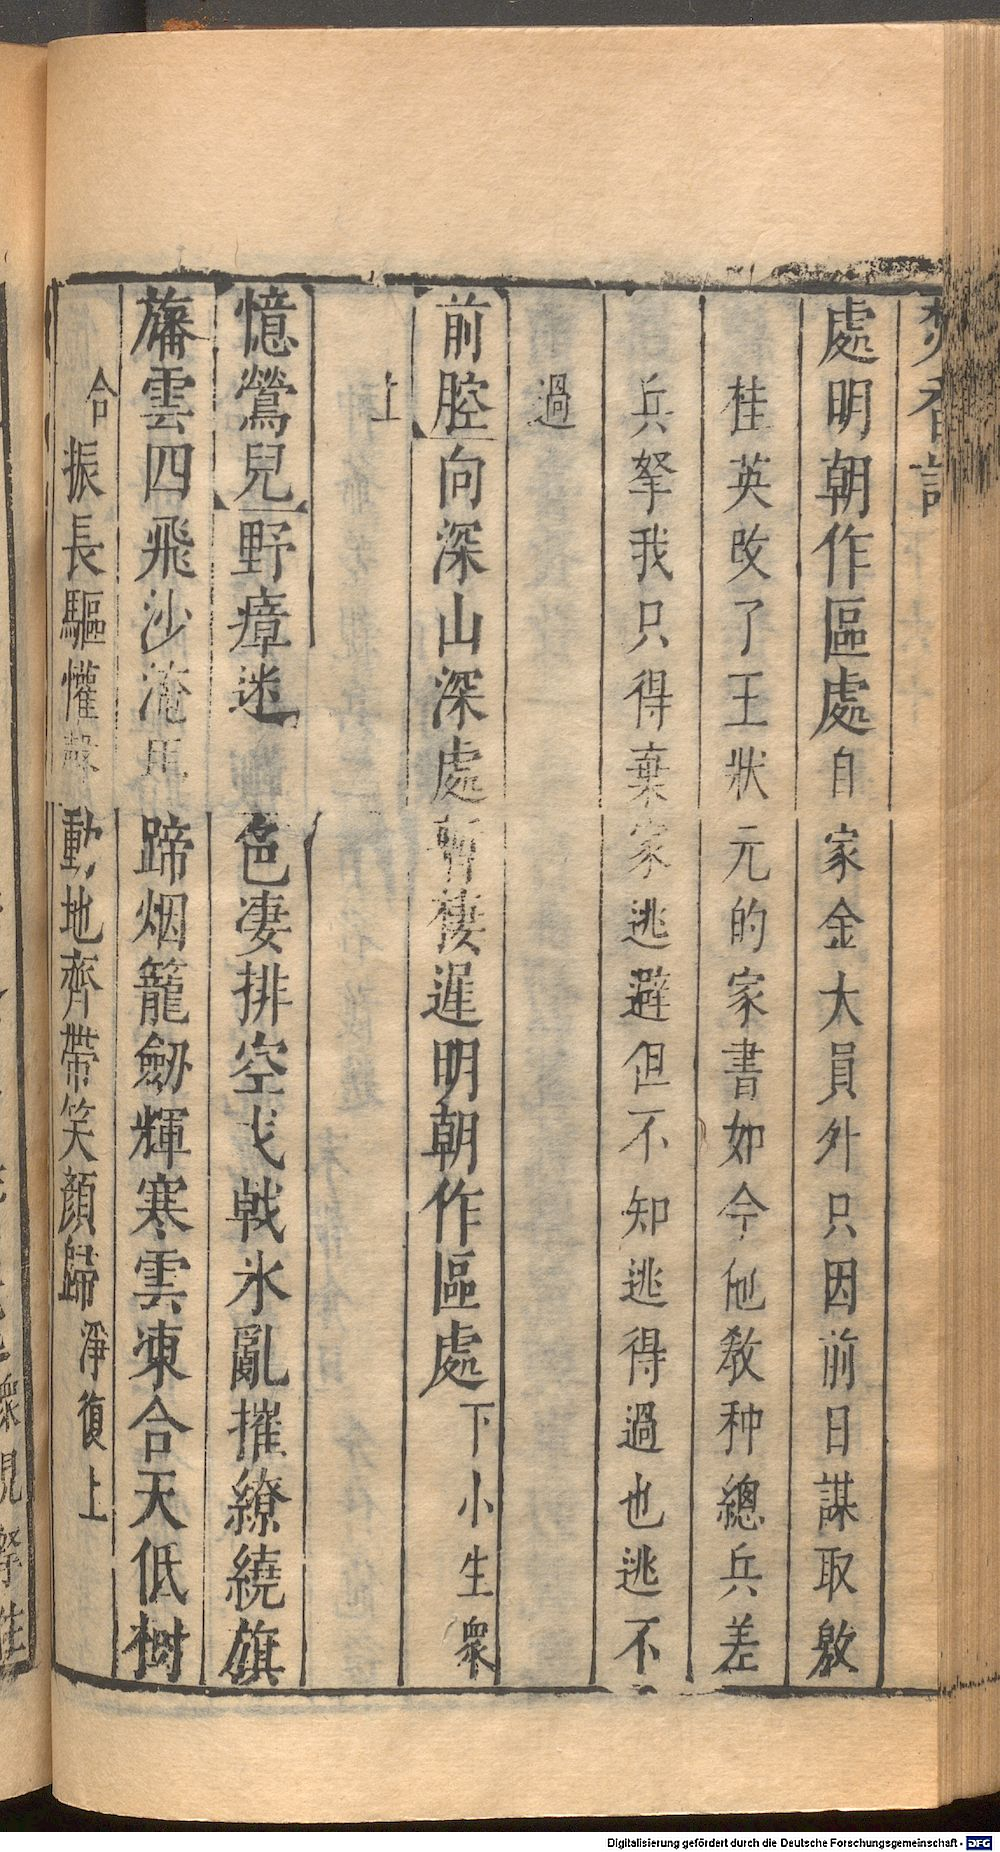 焚香記
處明朝作區處自家金大員外只因前日謀取敫
桂英改了王狀元的家書如今他教种總兵差
兵拏我只得棄家逃避但不知逃得過也逃不
過
前腔向深山深處暫棲遲明朝作區處下小生衆
上
憶鶯兒野瘴迷色凄排空戈戟氷亂摧繚繞旗
旛雲四飛沙淹馬蹄烟籠劒輝寒雲凍合天低樹
合振長驅懽聲動地齊帶笑顏歸淨復上
Digitalisierung gefördert durch die Deutsche Forschungsgemeinschaft - DFG